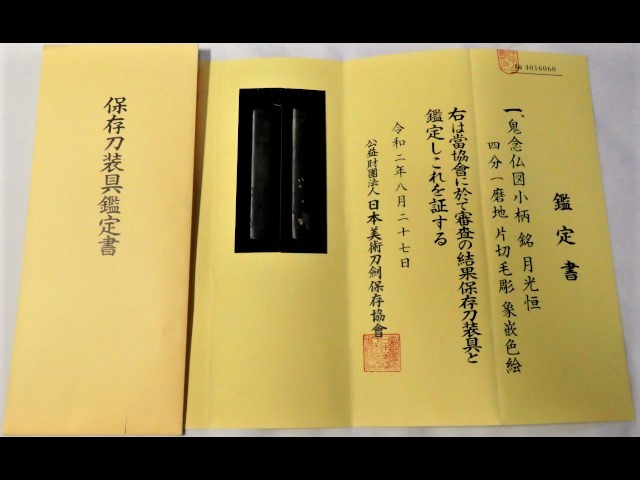 保存刀装具鑑定書
№ 4016060
鑑定書
一、鬼念仏図小柄 銘 月光恒
四分一磨地 片切毛彫 象嵌色絵
右は當協會に於て審査の結果保存刀装具と
鑑定しこれを証する
令和二年八月二十七日
公益財團法人日本美術刀劍保存協會